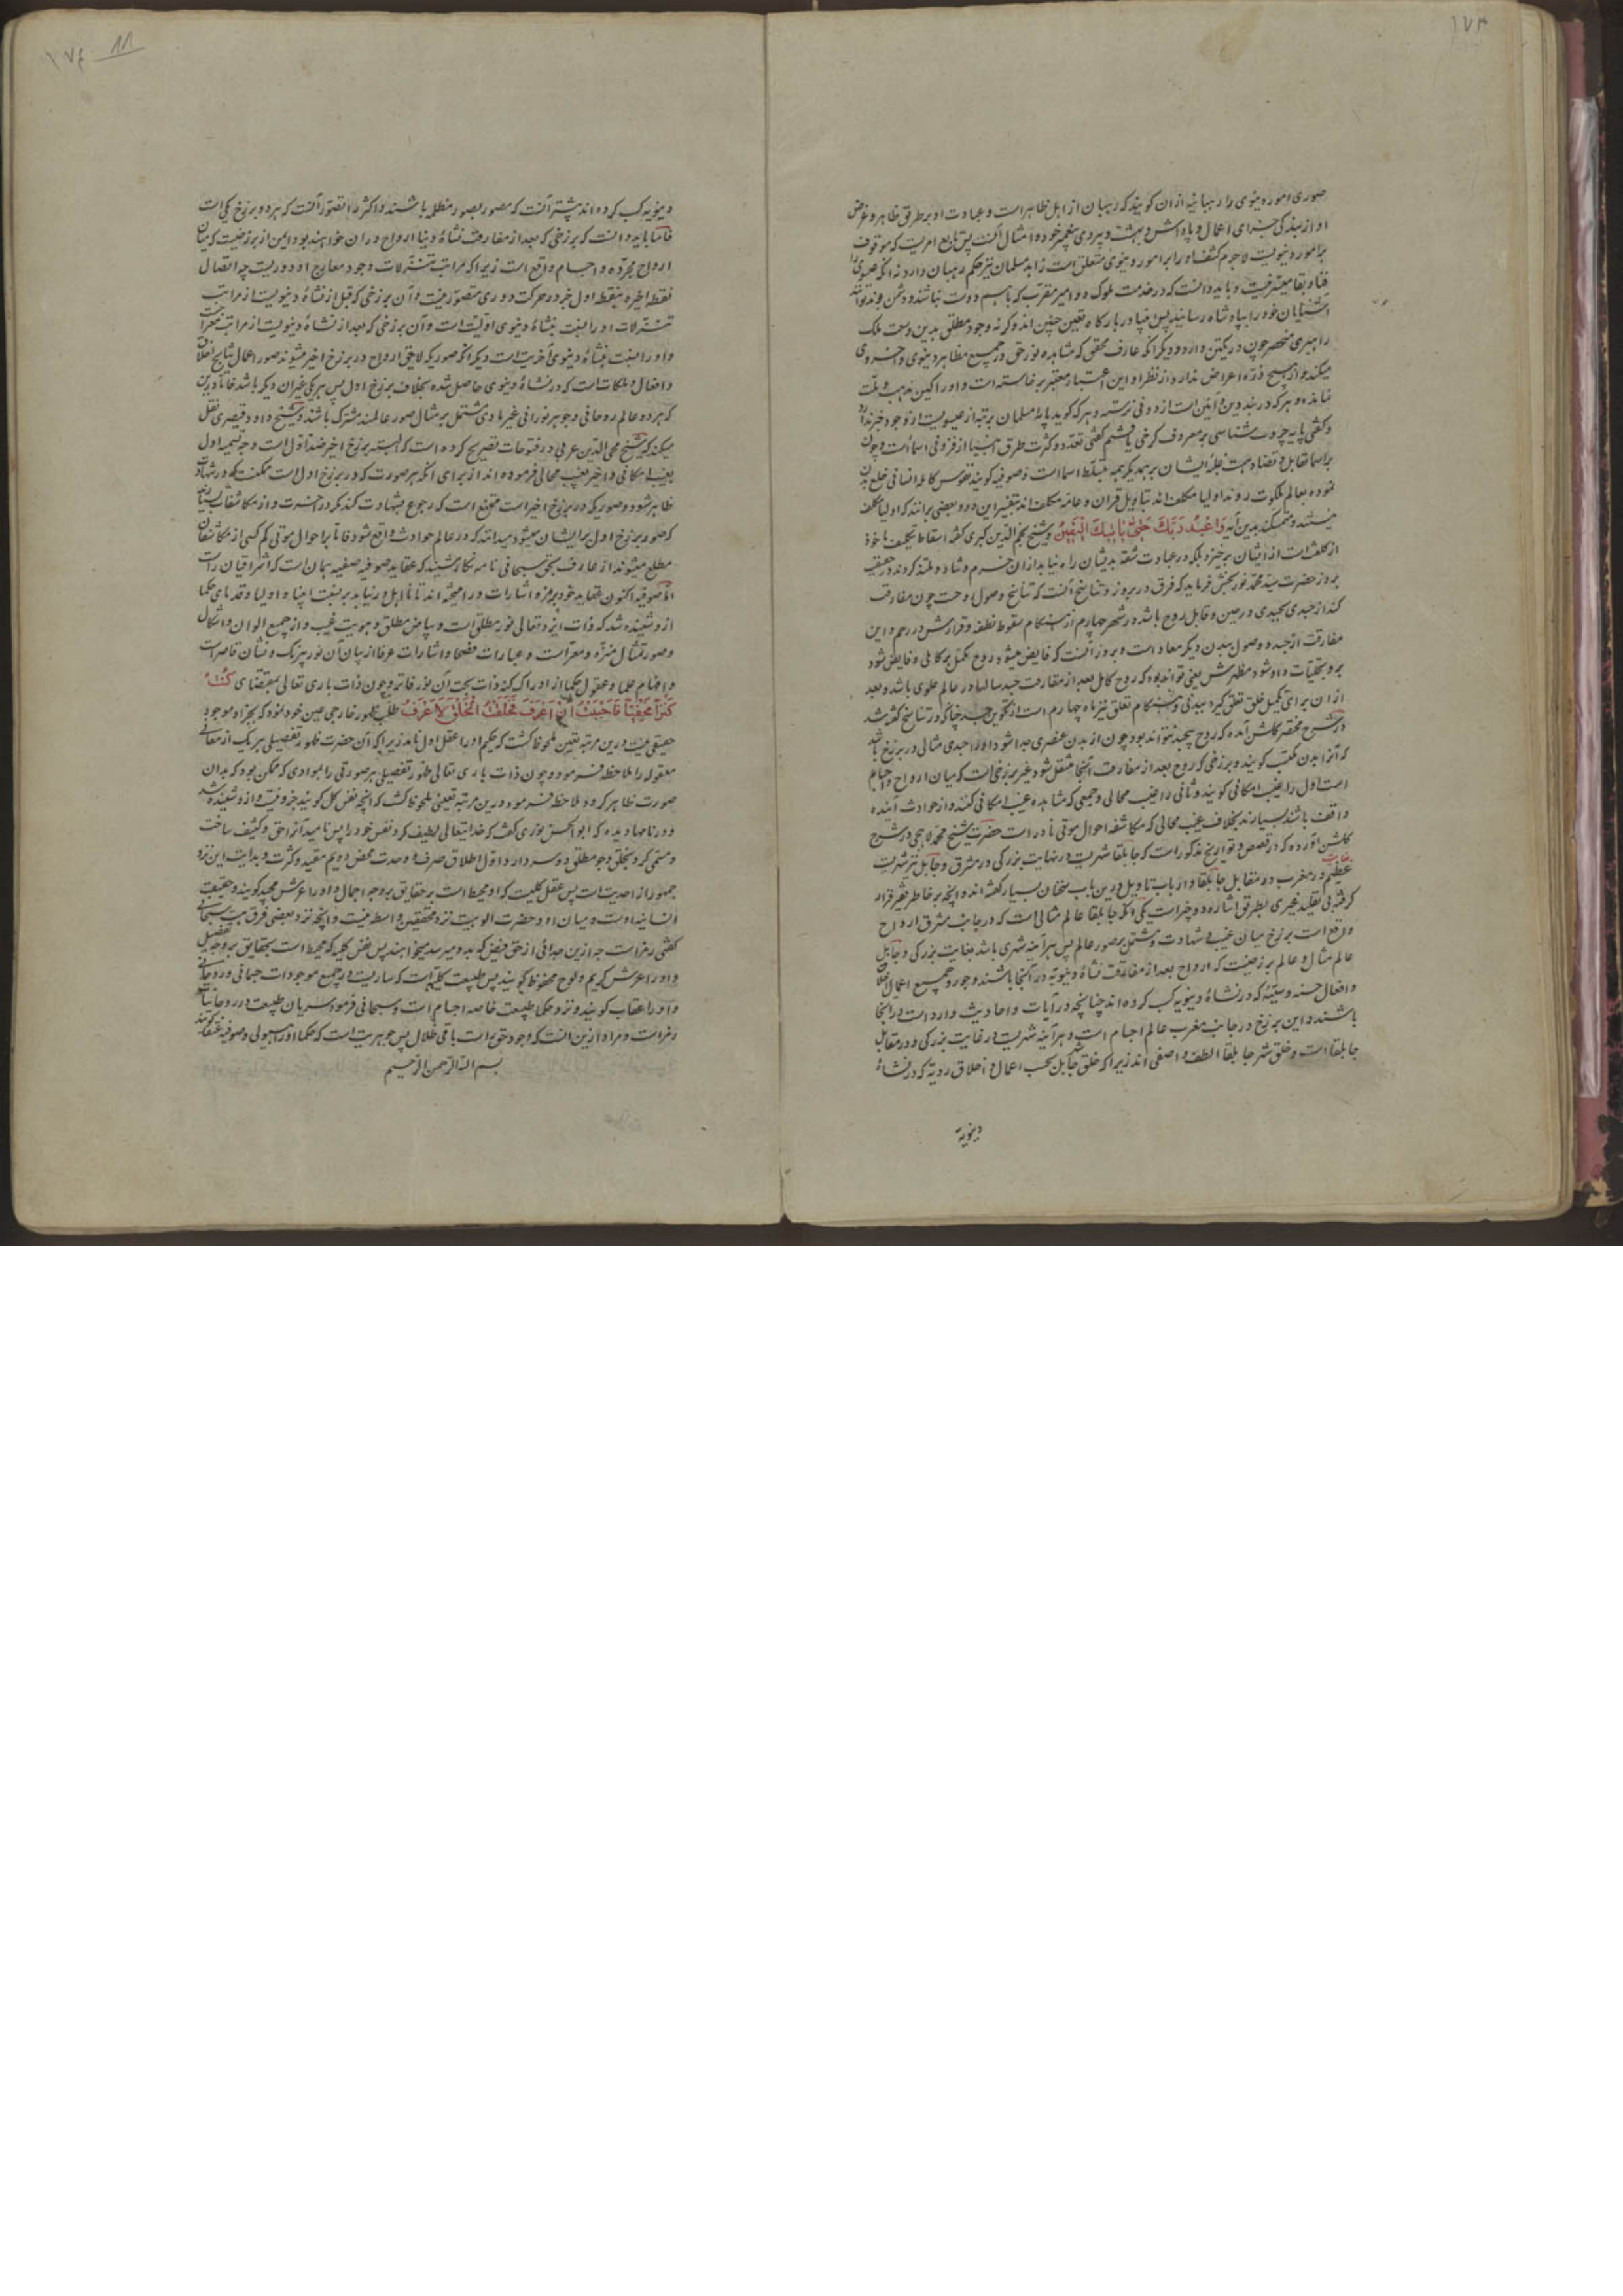 ۱۷۳
صوری امور دنیوی را رهبانیه ازان کویند که رهبان از اهل ظاهر است و عبادت او بر طریق ظاهر و غرض
او از بندگی جزای اعمال و پاداش و بهشت و پیروی پیغمبر خود و امثال آنست پس تابع امریست که موقوف
بر امور دنیویست لاجرم کشف او را بر امور دنیوی متعلق است زاهد مسلمان نیز حکم رهبان دارد
فنا و بقا میسر نیست و باید دانست که در خدمت ملوک
آشنایان خود را بپادشاه رسانید پس انبیا در بارگاه تعین چنین اند وگرنه وجود مطلق بدین وسعت ملک
را رهبری منحصر چون در یکتن دارد و دیگر آنکه عارف محقق که مشاهده نور حق در جمیع مظاهر دنیوی و اخروی
میکند و از هیچ ذره اعراض ندارد از نظر او این اعتبار معتبر برخاسته است و او را کیش و مذهب و ملت
نمانده و هر که در بند دین و آئین است از دوئی نرسته و هر که کوید پایهٔ مسلمان برتبه از عیسویست از وجود خبر ندارد
و کثرت طرق انبیا از فزونی اسماست و چون
بر اسما تقابل و تضاد هست غلبهٔ ایشان بر یکدیگر همه بتسلط اسما است و صوفیه کویند نفوس کاملهٔ انسانی خلع بدن
نموده بعالم ملکوت روند اولیا مکلف اند بتاویل قران و عامه مکلف اند بتفسیر این دو و بعضی برانند که اولیا مکلف
نیستند و متمسکند بدین آیه وَاعْبُدْ رَبَّكَ حَتّىٰ يَأْتِيَكَ الْيَقِينُ و شیخ نجم الدین کبری کفته اسقاط تکلیف ماخوذ
از کلفت است از ایشان برخیزد بلکه در عبادت مشقه بدیشان راه نیابد از ان خرم و شاد و ملتذ کردند در حقیقت
بروز حضرت سید محمد نوربخش فرماید که فرق در بروز و تناسخ آنست که تناسخ وصول روحست چون مفارقت
کند از جسدی بجسدی در حین و قابل روح باشد در شهر چهارم از هنکام سقوط نطفه و قرارش در رحم و این
مفارقت از جسد و وصول ببدن دیگر معاد است و بروز آنست که فایض میشود روح مکمل بر کاملی و فایض شود
برو تجلیات و او شود مظهرش یعنی تواند بود که روح کامل بعد از مفارقت جسد سالها در عالم علوی باشد و بعد
ازان برای تکمیل خلق تعلق کیرد ببدنی و هنکام تعلق نیز ماه چهارم است از تکوین جسد چنانکه در تناسخ کفته شد
در شرح مختصر کلشن آمده که روح بی جسد نتواند بود چون از بدن عنصری جدا شود او را جسدی مثالی در برزخ باشد
که آنرا بدن مکتسب کویند و برزخی که روح بعد از مفارقت آنجا منتقل شود غیر برزخی است که میان ارواح و اجسام
است اول را غیب امکانی کویند و ثانی را غیب محالی و جمعی که مشاهده غیب امکانی کنند و از حوادث آینده
واقف باشند بسیارند بخلاف غیب محالی که مکاشفه احوال موتی نادر است حضرت شیخ محمد لاهیجی در شرح
کلشن آورده که در قصص و تواریخ مذکور است که جابلقا شهریست در نهایت بزرکی در مشرق و جابلسا نیز شهریست
عظیم در مغرب در مقابل جابلقا و ارباب تاویل درین باب سخنان بسیار کفته اند و آنچه بر خاطر فقیر قرار
کرفته بی تقلید غیری بطریق اشاره دو چیز است یکی آنکه جابلقا عالم مثالی است که در جانب مشرق ارواح
واقع است برزخ میان غیب و شهادت و مشتمل بر صور عالم پس هرآینه شهری باشد بغایت بزرکی و جابلسا
عالم مثال و عالم برزخیست که ارواح بعد از مفارقت نشاهٔ دنیویه در آنجا باشند و صور جمیع اعمال
و افعال حسنه و سیئه که در نشاهٔ دنیویه کسب کرده اند چنانچه در آیات و احادیث وارد است در آنجا
باشند و این برزخ در جانب مغرب عالم اجسام است و هرآینه شهریست در غایت بزرکی و در مقابل
جابلقا است و خلق شهر جابلقا الطف و اصفی اند زیرا که خلق جابلسا بحسب اعمال و اخلاق ردیه که در نشاهٔ
دنیویه
۱۷۴ ۸۸
دنیویه کسب کرده اند بیشتر آنست که مصور بصور مظلمه باشند و اکثر را تصور آنست که هر دو برزخ یکی است
فاما باید دانست که برزخی که بعد از مفارقت نشاهٔ دنیا ارواح دران خواهند بود غیر از برزخیست که میان
ارواح مجرده و اجسام واقع است زیرا که مراتب تنزلات وجود و معارج او دوریست چه اتصال
نقطه اخیره بنقطه اول جز در حرکت دوری متصور نیست و آن برزخی که قبل از نشاهٔ دنیویست از مراتب
تنزلات و او را نسبت بنشاهٔ دنیوی اولیت است و آن برزخی که بعد از نشاهٔ دنیویست از مراتب معارج است
و او را نسبت بنشاهٔ دنیوی آخریت است دیگر آنکه صوریکه لاحق ارواح در برزخ اخیر میشوند صور اعمال و نتایج اخلاق
و افعال و ملکات است که در نشاهٔ دنیوی حاصل شده بخلاف برزخ اول پس هر یکی غیر ان دیگر باشد فاما درین
که هر دو عالم روحانی و جوهر نورانی غیر مادی مشتمل بر مثال صور عالمند مشترک باشند و شیخ داود قیصری نقل
میکند که شیخ محی الدین عربی در فتوحات تصریح کرده است که البته برزخ اخیر ضد اول است و وجه تسمیه اول
بغیب امکانی و اخیر بغیب محالی فرموده اند از برای آنکه هر صورت که در برزخ اول است ممکنست که در شهادت
ظاهر شود و صوریکه در برزخ اخیر است ممتنع است که رجوع بشهادت کند مگر در اخرت و از مکاشفان بسیارند
که صور برزخ اول بر ایشان میشود میدانند که در عالم حوادث چه واقع شود فاما بر احوال موتی کم کسی از مکاشفان
مطلع میشوند از عارف بحق سبحانی نامه نگار شنید که عقاید صوفیه صفیه همان است که اشراقیان راست
اما صوفیه اکنون عقاید خود برموز و اشارات درآمیخته اند تا نااهل درنیابد بر سنت انبیا و اولیا و قدمای حکما
ازو شنیده شد که ذات ایزد تعالی نور مطلق است و بیاض مطلق و هویت غیب و از جمیع الوان و اشکال
و صور و تمثال منزه و معراست و عبارات فصحا و اشارات عرفا از بیان آن نور بیرنک و نشان قاصر است
و افهام علما و عقول حکما از ادراک کنه ذات بحت آن نور فاتر و چون ذات باری تعالی بمقتضای كُنْتُ
كَنْزاً مَخْفِيّاً فَاَحْبَبْتُ اَنْ اُعْرَفَ فَخَلَقْتُ الْخَلْقَ لِاُعْرَفَ طلب ظهور خارجی عین خود نمود که بجز او موجود
حقیقی نیست درین مرتبه تعین ملحوظ کشت که حکیم او را عقل اول نامد زیرا که آن حضرت ظهور تفصیلی هر یک از معانی
معقوله را ملاحظه فرمود و چون ذات باری تعالی ظهور تفصیلی هر صورتی را بموادی که ممکن بود که بدان
صورت ظاهر کردد ملاحظه فرمود درین مرتبه تعینی ملحوظ کشت که آنچه نفس کل کویند جز او نیست و ازو شنیده شد
و در نامها دیده که ابو الحسن نوری کفت که خدایتعالی لطیف کرد نفس خود را پس نامید آنرا حق و کثیف ساخت
و مسمی کرد بخلق وجود مطلق دو سر دارد اول اطلاق صرف و وحدت محض دویم مقید و کثرت و بدایت این نزد
جمهور از احدیت است پس عقل کلیست که او محیط است بر حقایق بر وجه اجمال و او را عرش مجید کویند و حقیقت
انسانیه اوست و میان او و حضرت الوهیت نزد محققین واسطه نیست و آنچه نزد بعضی فرق هست سبحانی
کفتی رمز است
و او را عرش کریم و لوح محفوظ کویند پس طبیعت کلیه است که ساریست در جمیع موجودات جسمانی و روحانی
و او را عقاب کویند و نزد حکما طبیعت خاصه اجسام است و سبحانی فرمود سریان طبیعت در روحانیات
رمز است و مراد ازین آنست که وجود حق است باقی ظلال پس جوهریست که حکما او را هیولی و صوفیه عنقا کویند
بسم الله الرحمن الرحیم